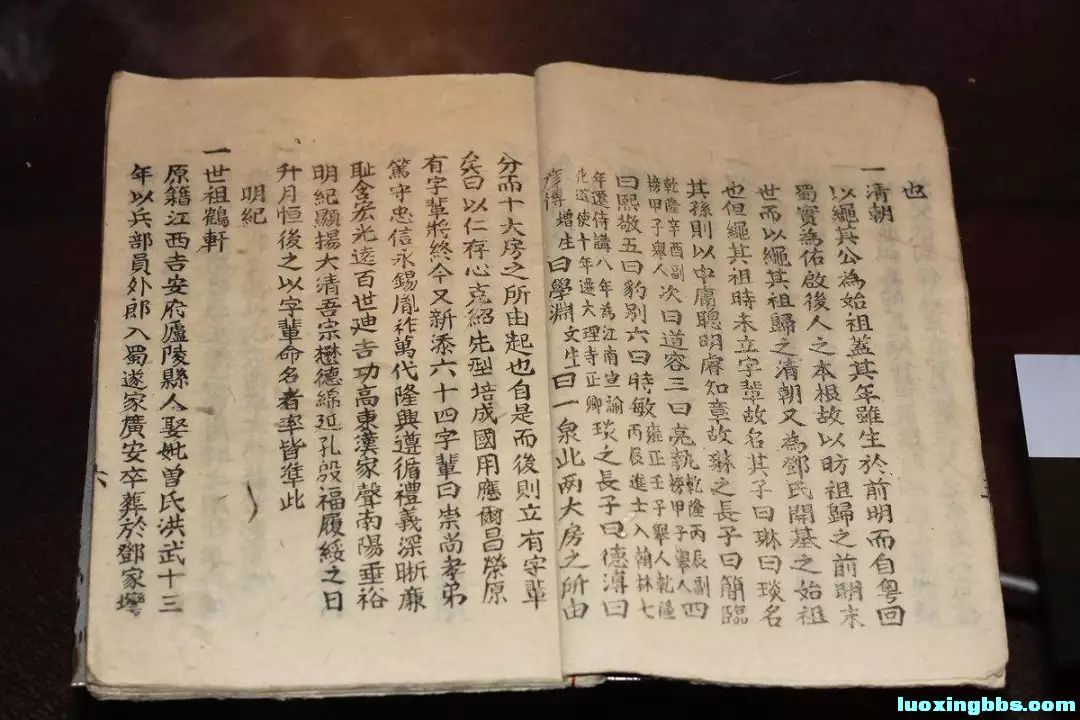 也
一清朝
以繩其公為始祖蓋其年雖生於前明而自粵回
蜀實為佑啟後人之本根故以昉祖歸之前朝末
世而以繩其祖歸之清朝又為鄧氏開基之始祖
也但繩其祖時未立字輩故名其子曰琳曰琰名
其孫則以中庸聰明睿知章故琳之長子曰簡臨
乾隆辛酉副榜甲子舉人次曰道容三曰亮執乾隆丙辰副榜甲子舉人四
曰熙敬五曰豹別六曰時敏雍正壬子舉人乾隆丙辰進士入翰林七
年遷侍講八年為江南宣諭化道使十年遷大理寺正卿琰之長子曰德溥曰
增生曰學淵文生曰一泉此兩大房之所由
分而十大房之所由起也自是而後則立有字輩
矣曰以仁存心克紹先型培成國用應爾昌榮原
有字輩將終今又新添六十四字輩曰崇尚孝弟
篤守忠信永錫胤祚萬代隆興遵循禮義深晰廉
恥含宏光遠百世迪吉功高東漢家聲南陽垂裕
明紀顯揚大清吾宗懋德綿延孔殷福履綏之日
升月恒後之以字輩命名者率皆準此
明紀
一世祖鶴軒
原籍江西吉安府廬陵縣人娶妣曾氏洪武十三
年以兵部員外郎入蜀遂家廣安卒葬於鄧家灣
六
luoxingbbs.com